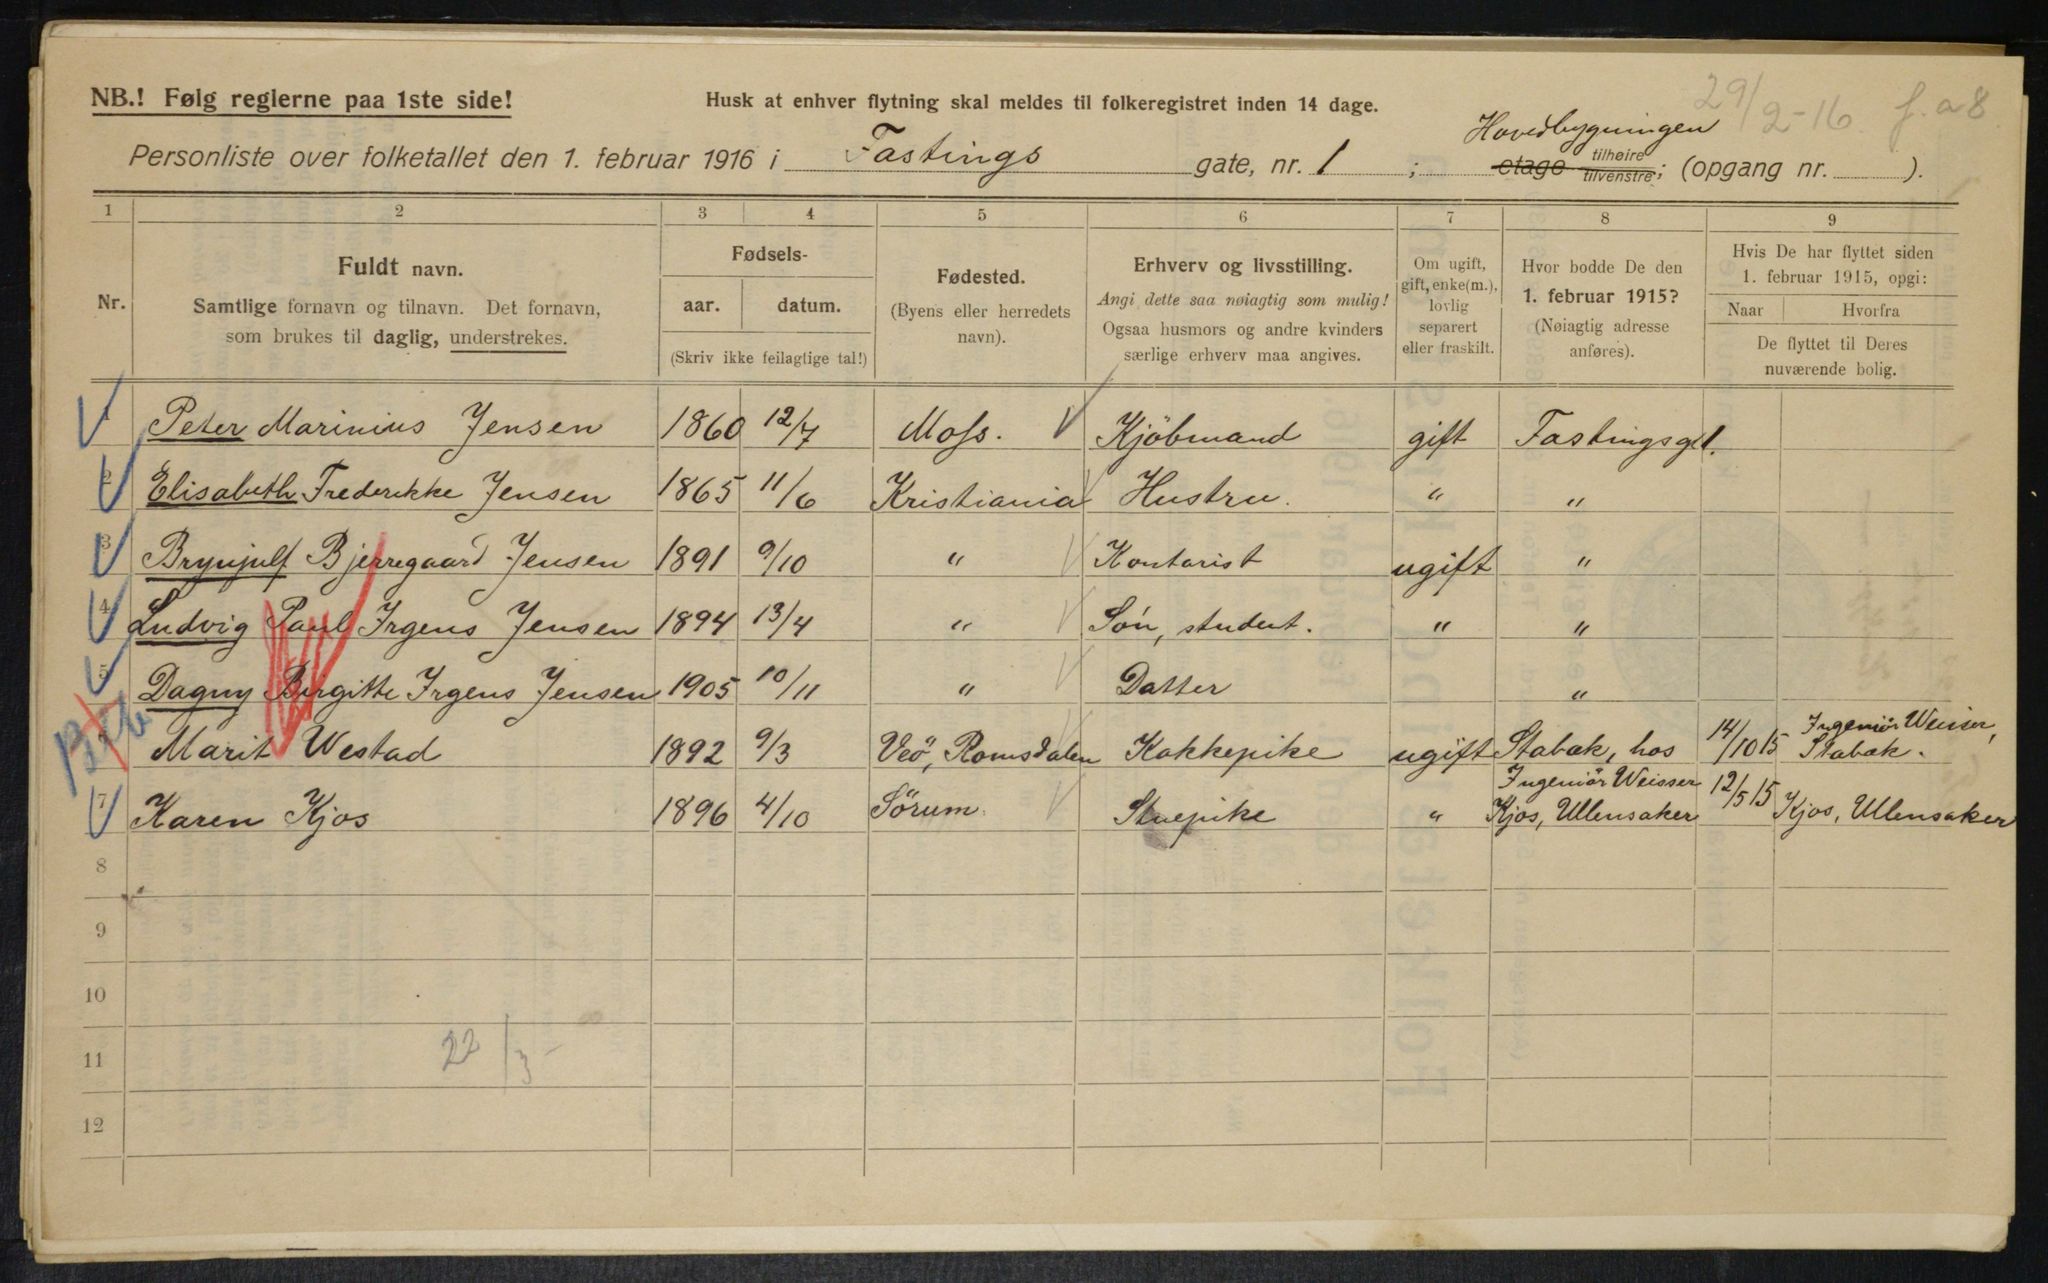 NB.! Følg reglerne paa 1ste side!
Husk at enhver flytning skal meldes til folkeregistret inden 14 dage.
29/2-16 f. a 8
Hovedbygningen
Personliste over folketallet den 1. februar 1916 i Fastings gate, nr. 1 ; etage tilhøire tilvenstre; (opgang nr. ).
1 2 3 4 5 6 7 8 9
Nr.
Fuldt navn.
Samtlige fornavn og tilnavn. Det fornavn,
som brukes til daglig, understrekes.
Fødsels-
aar. datum.
(Skriv ikke feilagtige tal!)
Fødested.
(Byens eller herredets
navn).
Erhverv og livsstilling.
Angi dette saa nøiagtig som mulig!
Ogsaa husmors og andre kvinders
særlige erhverv maa angives.
Om ugift,
gift, enke(m.),
lovlig
separert
eller fraskilt.
Hvor bodde De den
1. februar 1915?
(Nøiagtig adresse
anføres).
Hvis De har flyttet siden
1. februar 1915, opgi:
Naar Hvorfra
De flyttet til Deres
nuværende bolig.
1 Peter Marinius Jensen 1860 12/7 Moss. Kjöbmand gift Fastingsgt 1.
2 Elisabeth Frederikke Jensen 1865 11/6 Kristiania Hustru. " "
3 Brynjulf Bjerregaard Jensen 1891 9/10 " Kontorist ugift "
4 Ludvig Paul Irgens Jensen 1894 13/4 " Sön, student. " "
5 Dagny Birgitte Irgens Jensen 1905 10/11 " Datter "
Marit Westad 1892 9/3 Veö, Romsdalen Kokkepike ugift Stabæk, hos Ingeniör Weisser 14/10 15 Ingeniör Weisser, Stabæk.
7 Karen Kjos 1896 4/10 Sörum Stuepike " Kjos, Ullensaker 12/5 15 Kjos, Ullensaker
8
9
10
11
22/3
12